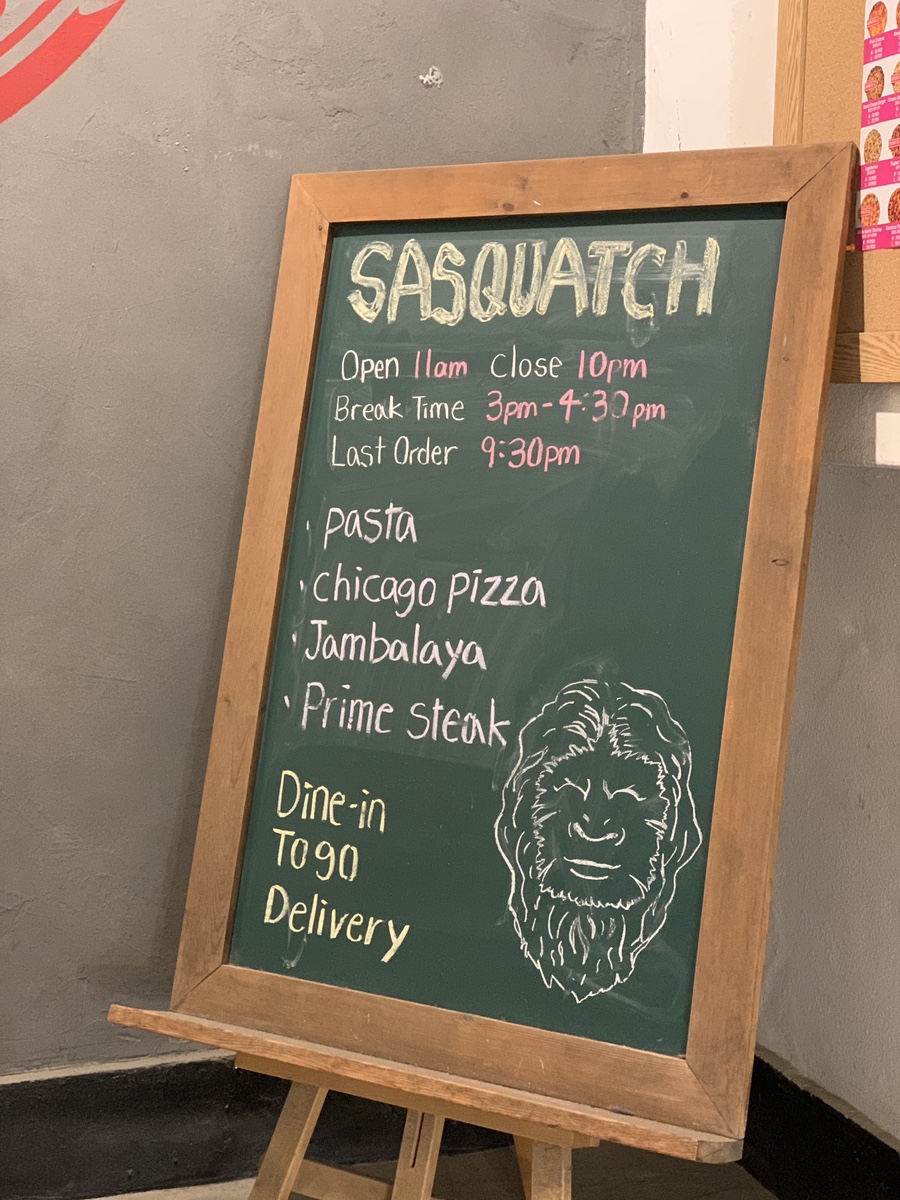 SASQUATCH
Open 11am Close 10pm
Break Time 3pm-4:30pm
Last Order 9:30pm
· pasta
· chicago pizza
· Jambalaya
· Prime steak
Dine-in
Togo
Delivery